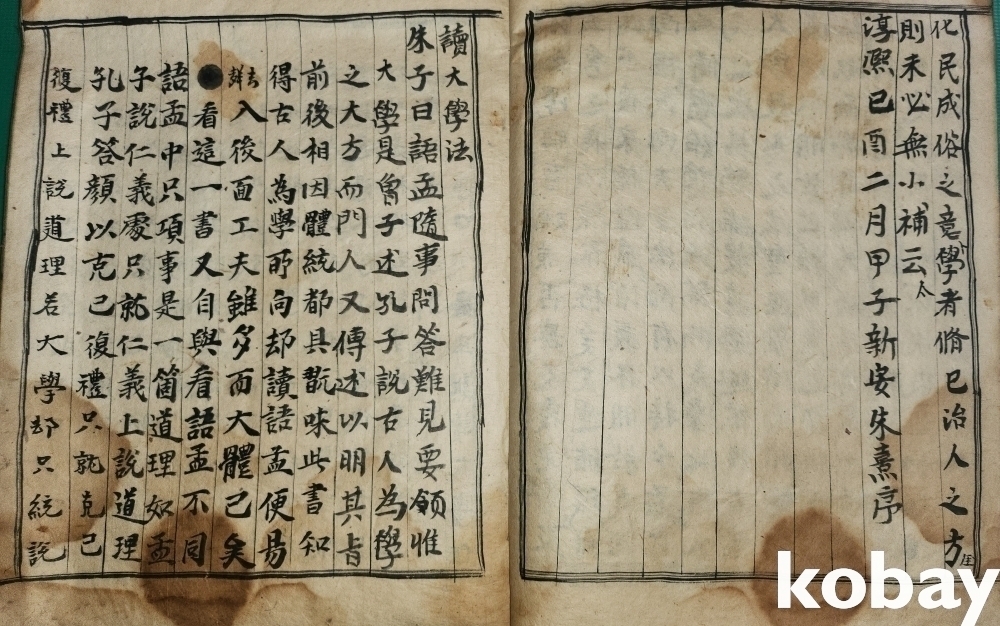 化民成俗之意學者脩已治人之方
則未必無小補云
淳熙已酉二月甲子新安朱熹序
讀大學法
朱子曰語孟隨事問答難見要領惟
大學是曾子述孔子說古人為學
之大方而門人又傳述以明其旨
前後相因體統都具翫味此書知
得古人為學所向却讀語孟便易
入後面工夫雖多而大體已矣
看這一書又自與看語孟不同
語孟中只項事是一箇道理如孟
子說仁義處只就仁義上說道理
孔子答顔以克己復禮只就克己
復禮上說道理若大學却只統說
kobay